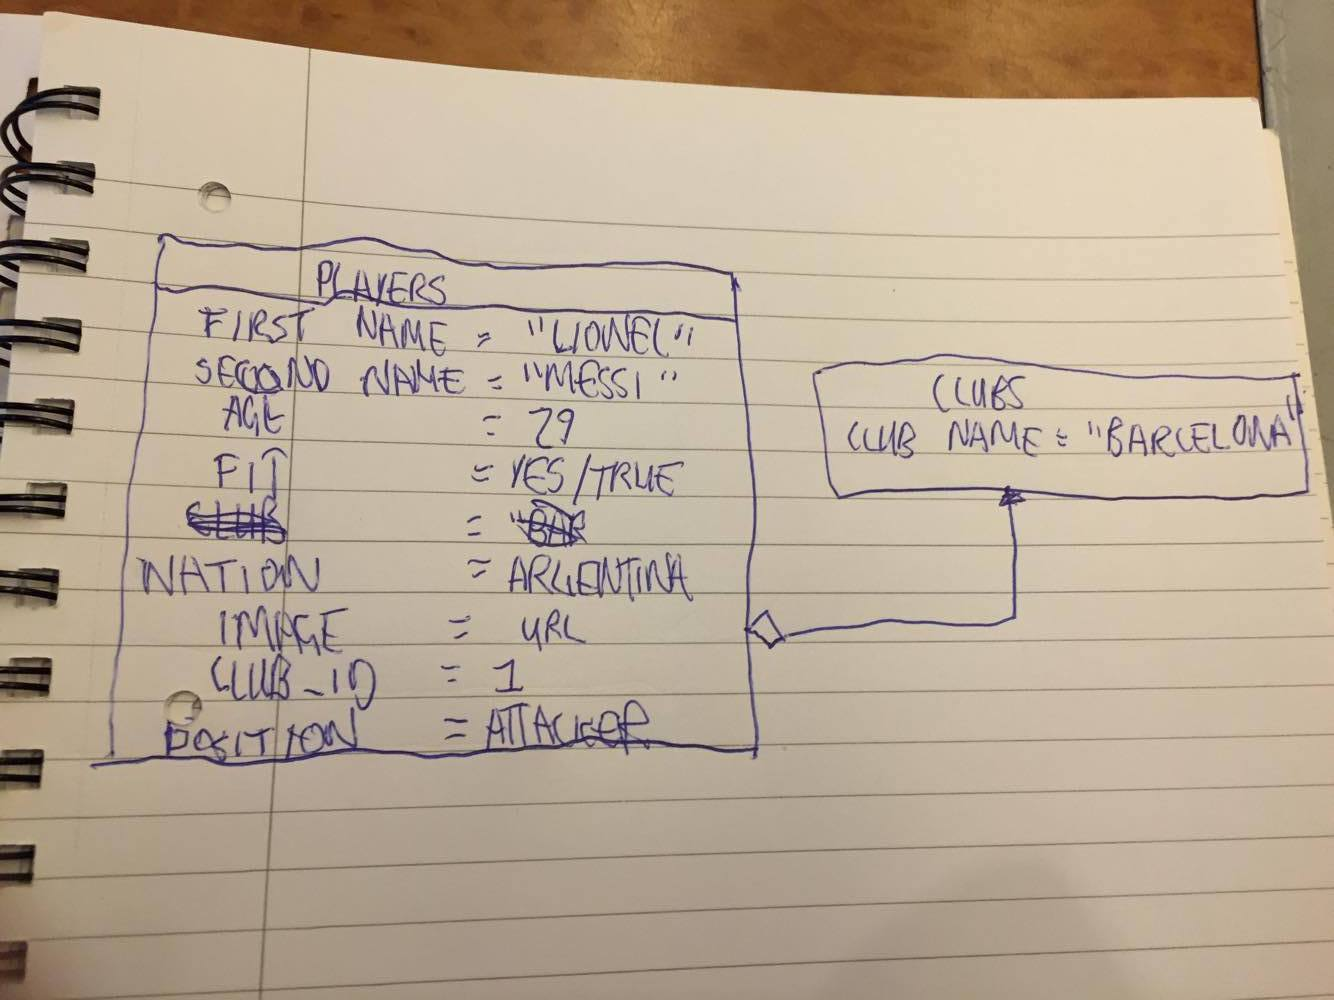 PLAYERS
FIRST NAME = "LIONEL"
SECOND NAME = "MESSI"
AGE = 29
FIT = YES/TRUE
CLUB = "BAR
NATION = ARGENTINA
IMAGE = URL
CLUB_ID = 1
POSITION = ATTACKER
CLUBS
CLUB NAME = "BARCELONA"